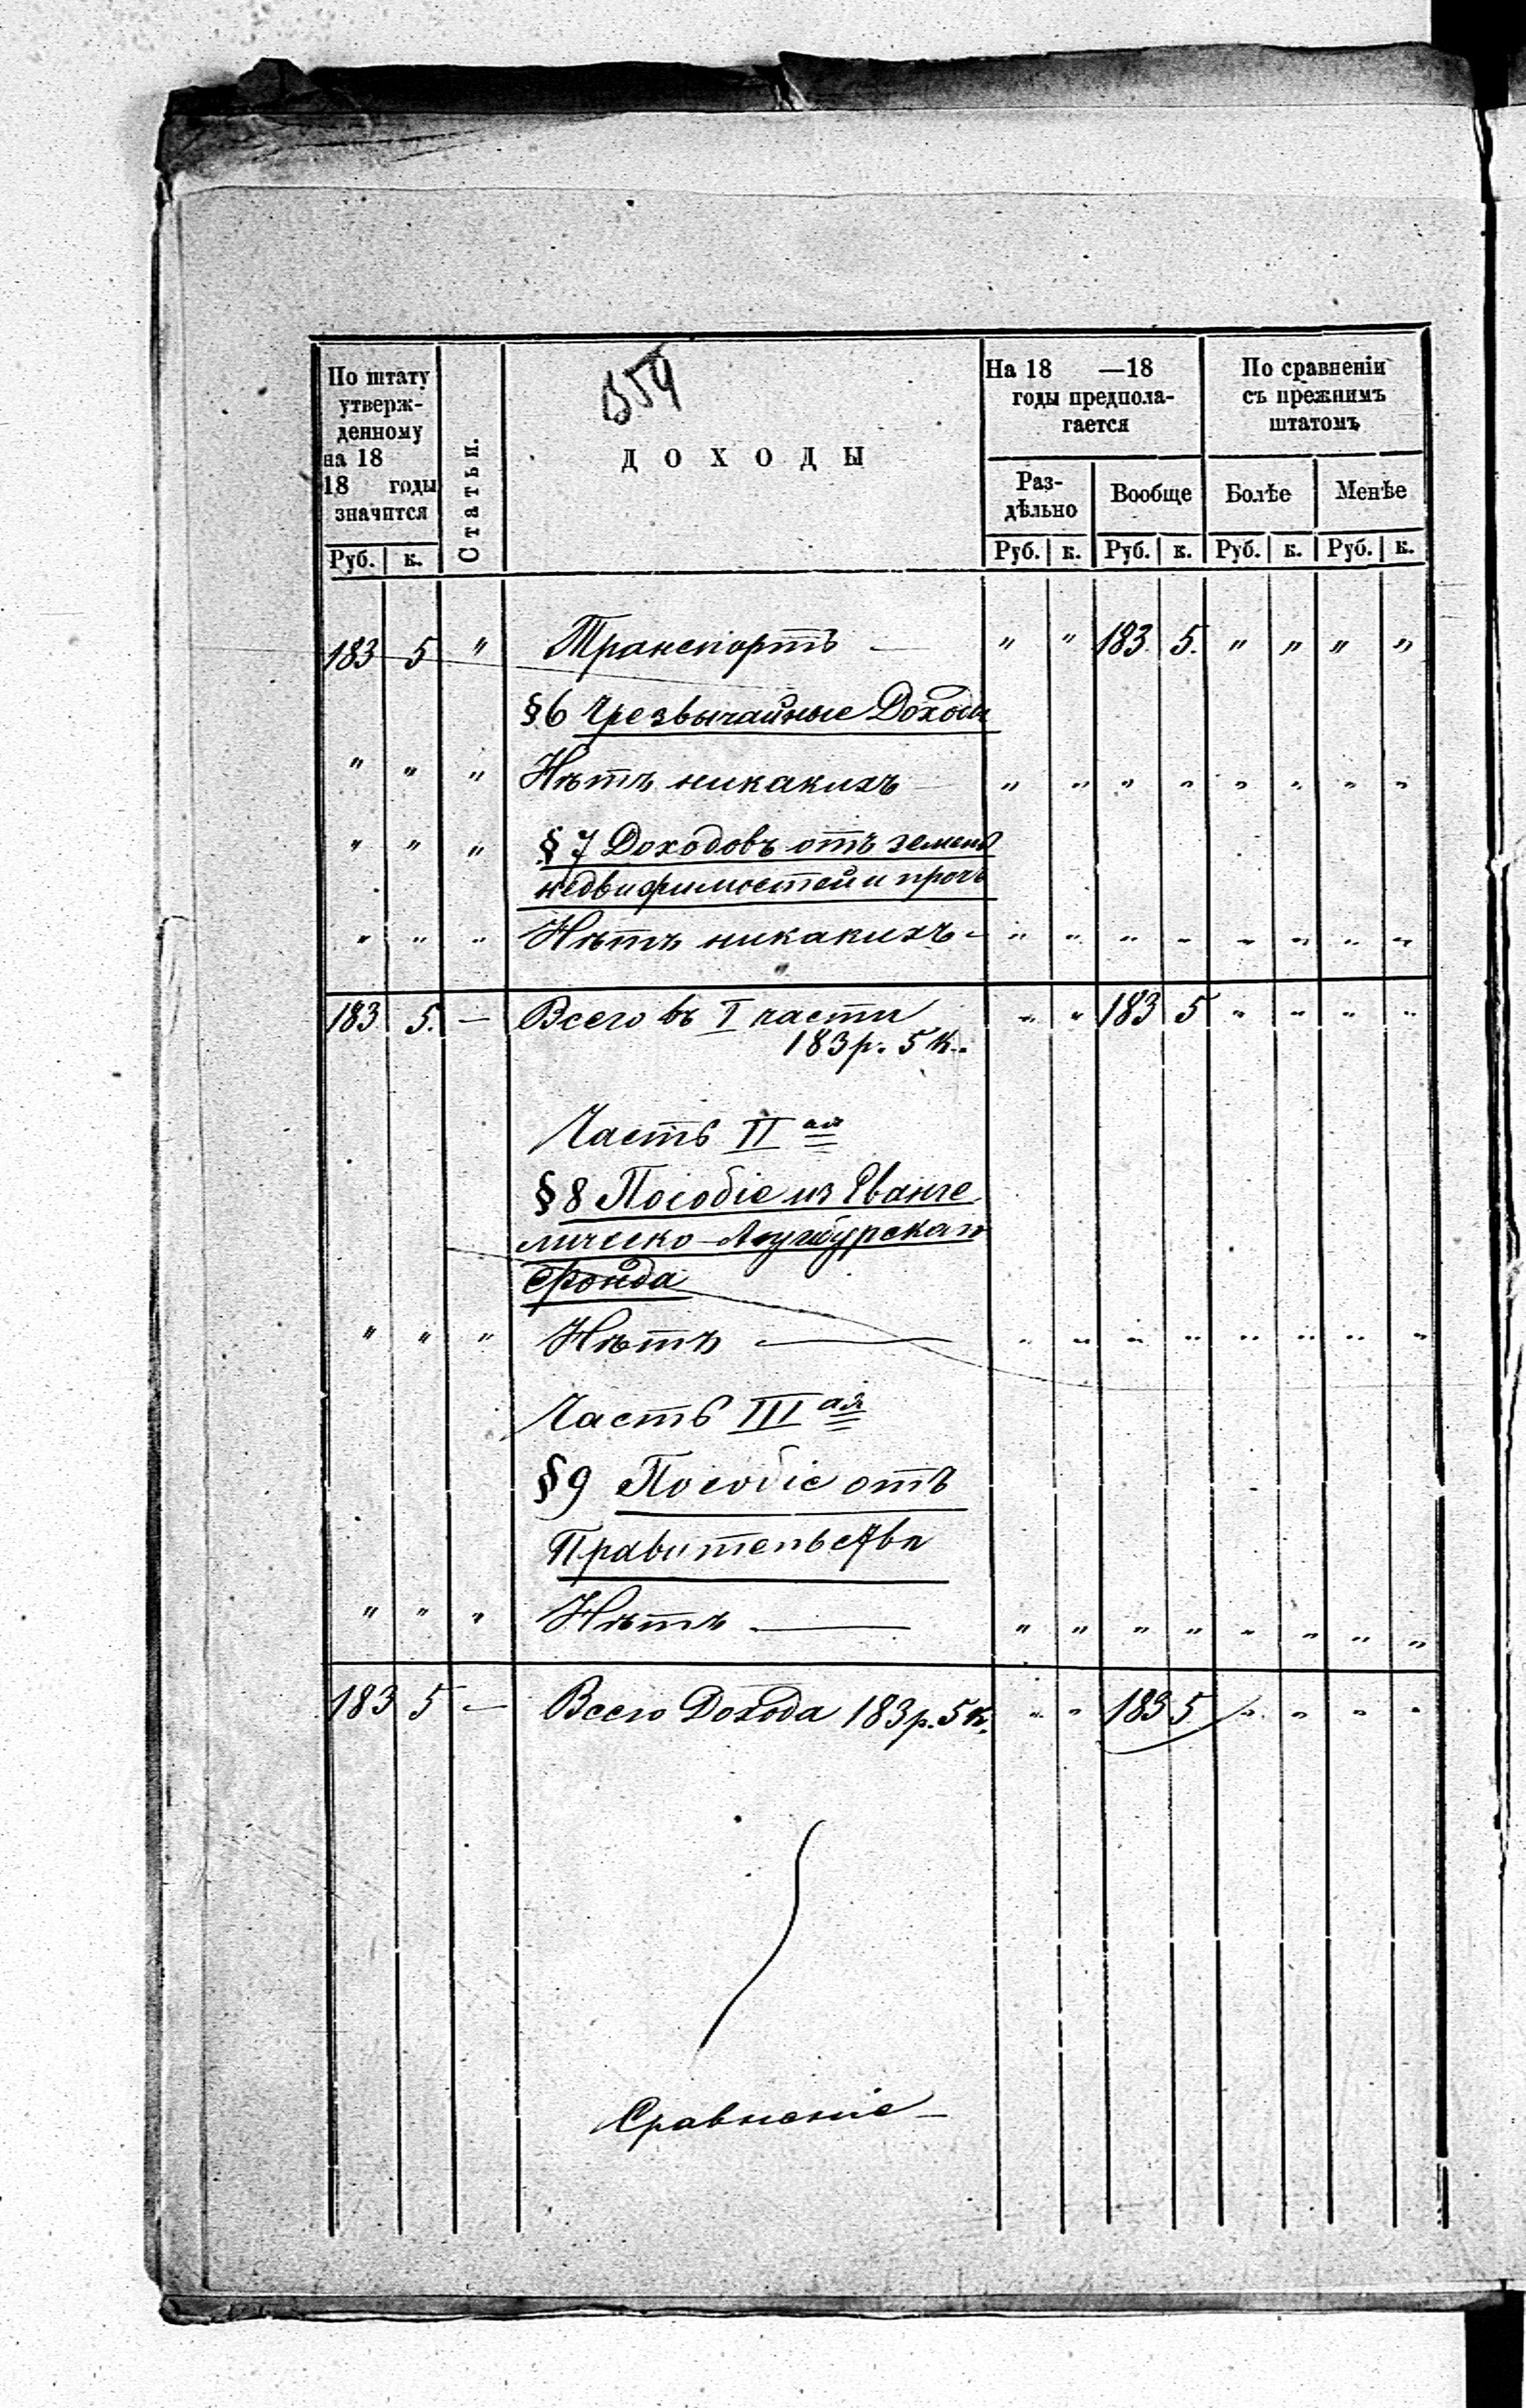 По штату
утверж-
денному
на 18
18 годы
значится
Руб. к.
Статьи.
554
ДОХОДЫ
На 18 —18
годы предпола-
гается
Раз-
дѣльно
Вообще
Руб. к. Руб. к.
По сравненіи
съ прежнимъ
штатомъ
Болѣе Менѣе
Руб. к. Руб. к.
183 5 " Транспортъ — " " 183. 5. " " " "
§6 Чрезвычайные Доходы
" " " Нѣтъ никакихъ — " " " " " " " "
" " " § 7 Доходовъ отъ земель
недвижимостей и проч.
" " " Нѣтъ никакихъ — " " " " " " " "
183 5. — Всего въ I части " " 183 5 " " " "
183 р. 5 к.
Часть II ая
§ 8 Пособіе из Еванге
лическо-Аугсбурскаго
фонда
" " " Нѣтъ — " " " " " " " "
Часть III ая
§ 9 Пособіе отъ
Правительства
" " " Нѣтъ — " " " " " " " "
183 5 — Всего Дохода 183 р. 5 к. " " 183 5 " " " "
Сравненіе —